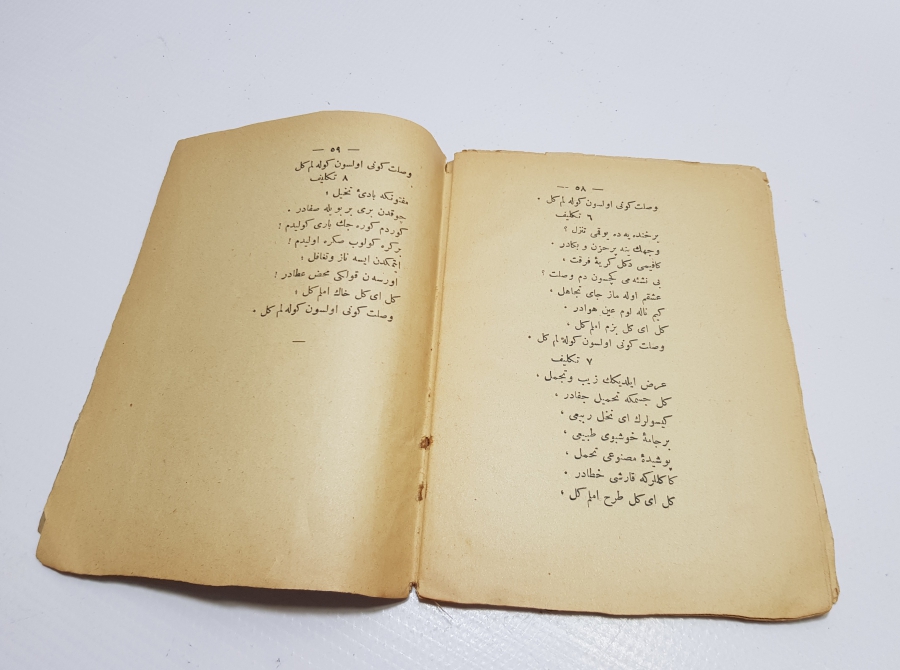 — ٥٨ —
وصلت كونی اولسون كوله لم كل .
٦ تكليف
برخنده یه ده یوقمی تنزل ؟
وجهك ینه پرحزن و بكادر .
كافیمی دكل كریهٔ فرقت ،
بی نشئه می كچسون دم وصلت ؟
عشقم اوله ماز جای تجاهل .
كیم ناله لوم عین هوادر .
كل ای كل بزم املم كل ،
وصلت كونی اولسون كوله لم كل .
٧ تكليف
عرض ایلدیكك زیب و تجمل .
كل جسمكه تحمیل جفادر ،
كیسولرك ای نخل ربیعی ،
برجامهٔ خوشبوی طبیعی ،
پوشیدهٔ مصنوعی تحمل ،
كاكللركه قارشی خطادر .
كل ای كل طرح املم كل ،
— ٥٩ —
وصلت كونی اولسون كوله لم كل
٨ تكليف
مفتونكه بادیٔ تخیل ؛
چوقدن بری بر بویله صفادر .
كوردم كوره جك باری كولیدم !
بركره كولوب صكره اولیدم !
ایتمكدن ایسه ناز و تغافل ؛
اورسه ك قولكی محض عطادر !
كل ای كل خاك املم كل ؛
وصلت كونی اولسون كوله لم كل .
—